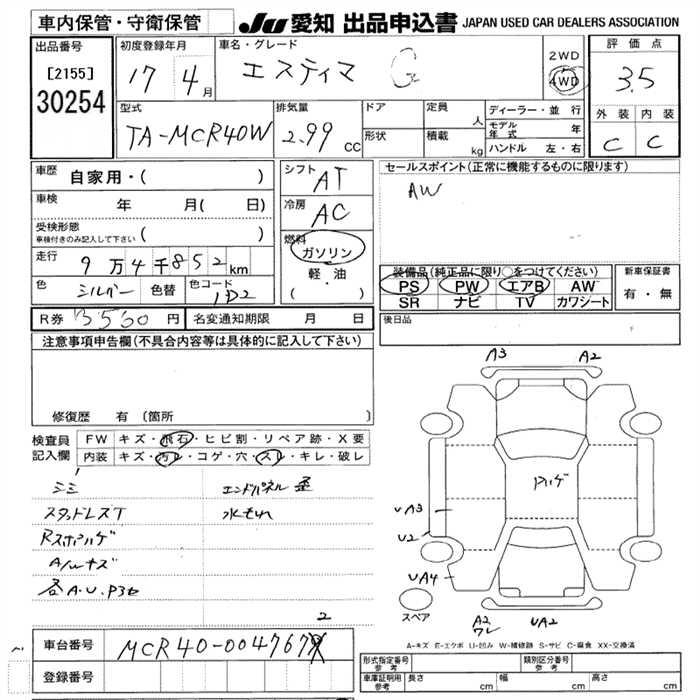 車内保管・守衛保管
JU 愛知 出品申込書 JAPAN USED CAR DEALERS ASSOCIATION
出品番号
[2155]
30254
初度登録年月
17 4月
車名・グレード
エスティマ G
2WD
4WD
評価点
3.5
外装 内装
C C
型式
TA-MCR40W
排気量
2.99 CC
ドア
形状
定員 人
積載 kg
ディーラー・並行
モデル年式 年
ハンドル 左・右
車歴 自家用・( )
車検 年 月( 日)
受検形態
車検付きのみ記入して下さい ( )
走行 9万4千852km
色 シルバー 色替 色コード 1D2
シフト AT
冷房 AC
燃料
ガソリン
軽・油
( ・ )
セールスポイント(正常に機能するものに限ります)
AW
装備品(純正品に限り○をつけてください)
PS PW エアB AW
SR ナビ TV カワシート
新車保証書
有・無
R券 円 名変通知期限 月 日
後日品
注意事項申告欄(不具合内容等は具体的に記入して下さい)
修復歴 有(箇所 )
検査員記入欄
FW キズ・飛石・ヒビ割・リペア跡・X要
内装 キズ・汚レ・コゲ・穴・スレ・キレ・破レ
シミ
スタッドレスT
各A.U.P3セ
エンドパネル歪
水もれ
2
A3 A2
ハゲ
UA3
U2
UA4
スペア
A2
ワレ
UA2
A-キズ E-エクボ U-凹み W-補修跡 S-サビ C-腐食 XX-交換済
車台番号 MCR40-004767
登録番号
形式指定番号 参考
類別区分番号 参考
車庫証明用 参考 長さ cm 幅 cm 高さ cm